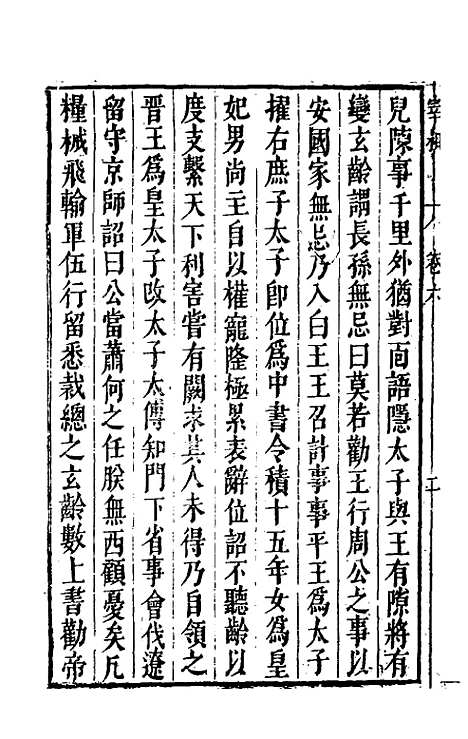 兒陳事千里外猶對面語隱太子與王有隙將有
變玄齡謂長孫無忌曰莫若勸王行周公之事以
安國家無忌乃入白王王召計事事平王爲太子
擢右庶子太子卽位爲中書令積十五年女爲皇
妃男尚主自以權寵隆極累表辭位詔不聽齡以
度支繫天下利害嘗有闕求其人未得乃自領之
晉王爲皇太子改太子太傅知門下省事會伐遼
留守京師詔曰公當蕭何之任朕無西顧憂矣凡
糧械飛輸軍伍行留悉裁總之玄齡數上書勸帝